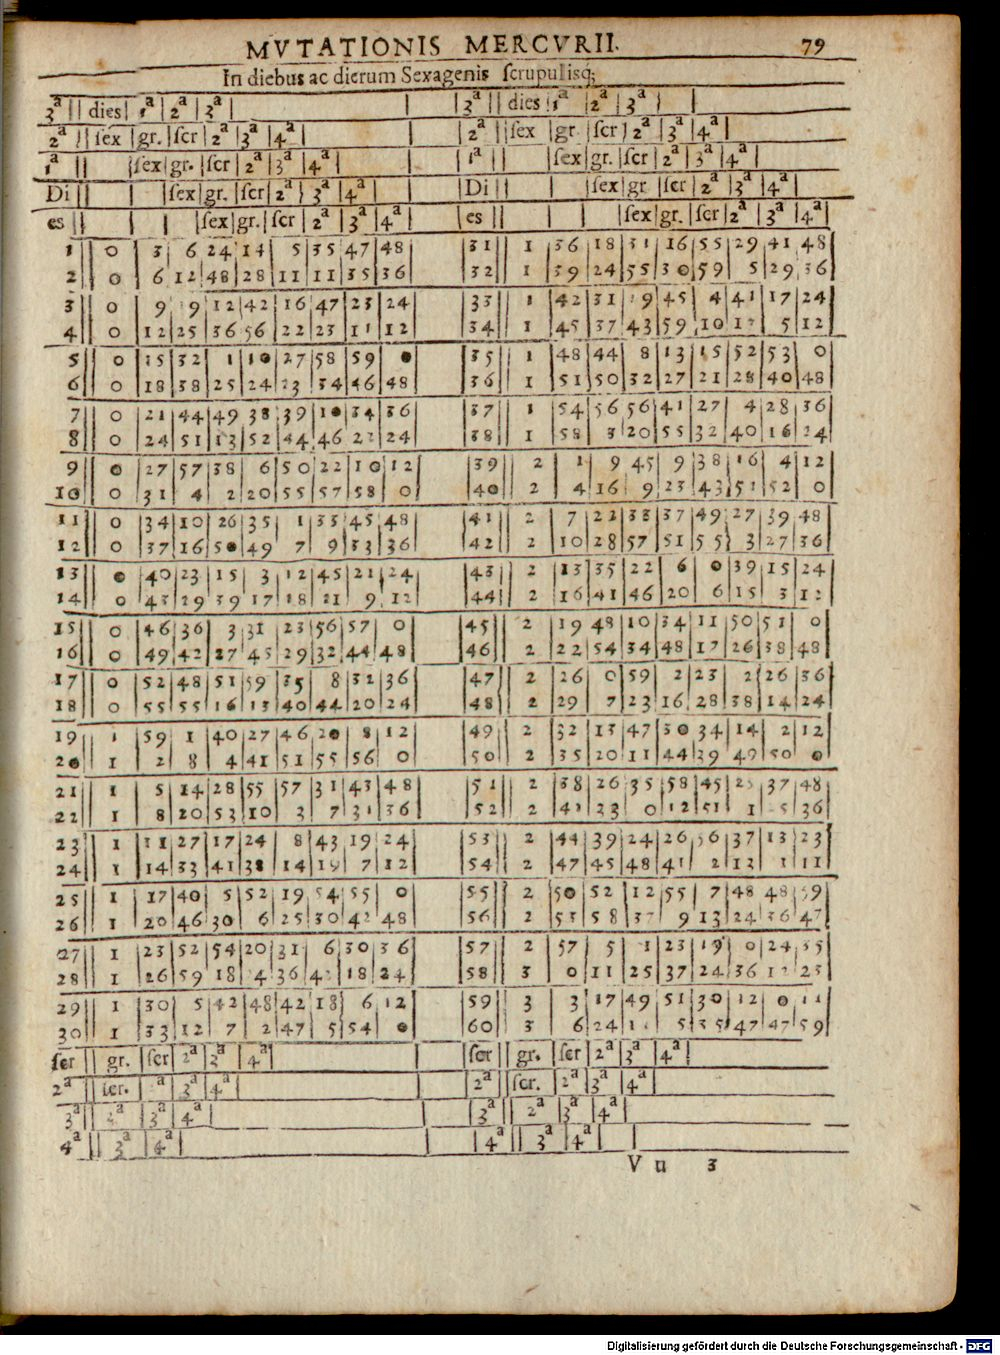 MVTATIONIS MERCVRII. 79
In diebus ac dierum Sexagenis scrupulisq;
3ª || dies | 1ª | 2ª | 3ª | | 3ª || dies | 1ª | 2ª | 3ª |
2ª || sex | gr. | scr | 2ª | 3ª | 4ª | | 2ª || sex | gr. | scr | 2ª | 3ª | 4ª |
1ª || | sex | gr. | scr | 2ª | 3ª | 4ª | | 1ª || | sex | gr. | scr | 2ª | 3ª | 4ª |
Di || | sex | gr. | scr | 2ª | 3ª | 4ª | | Di || | sex | gr | scr | 2ª | 3ª | 4ª |
es || | | sex | gr. | scr | 2ª | 3ª | 4ª | | es || | | sex | gr. | scr | 2ª | 3ª | 4ª |
1 || 0 | 3 | 6 | 24 | 14 | 5 | 35 | 47 | 48 | 31 || 1 | 36 | 18 | 31 | 16 | 55 | 29 | 41 | 48
2 || 0 | 6 | 12 | 48 | 28 | 11 | 11 | 35 | 36 | 32 || 1 | 39 | 24 | 55 | 30 | 59 | 5 | 29 | 36
3 || 0 | 9 | 9 | 12 | 42 | 16 | 47 | 23 | 24 | 33 || 1 | 42 | 31 | 19 | 45 | 4 | 41 | 17 | 24
4 || 0 | 12 | 25 | 36 | 56 | 22 | 23 | 11 | 12 | 34 || 1 | 45 | 37 | 43 | 59 | 10 | 17 | 5 | 12
5 || 0 | 15 | 32 | 1 | 10 | 27 | 58 | 59 | 0 | 35 || 1 | 48 | 44 | 8 | 13 | 15 | 52 | 53 | 0
6 || 0 | 18 | 38 | 25 | 24 | 23 | 34 | 46 | 48 | 36 || 1 | 51 | 50 | 32 | 27 | 21 | 28 | 40 | 48
7 || 0 | 21 | 44 | 49 | 38 | 39 | 10 | 34 | 36 | 37 || 1 | 54 | 56 | 56 | 41 | 27 | 4 | 28 | 36
8 || 0 | 24 | 51 | 13 | 52 | 44 | 46 | 22 | 24 | 38 || 1 | 58 | 3 | 20 | 55 | 32 | 40 | 16 | 24
9 || 0 | 27 | 57 | 38 | 6 | 50 | 22 | 10 | 12 | 39 || 2 | 1 | 9 | 45 | 9 | 38 | 16 | 4 | 12
10 || 0 | 31 | 4 | 2 | 20 | 55 | 57 | 58 | 0 | 40 || 2 | 4 | 16 | 9 | 23 | 43 | 51 | 52 | 0
11 || 0 | 34 | 10 | 26 | 35 | 1 | 33 | 45 | 48 | 41 || 2 | 7 | 22 | 33 | 37 | 49 | 27 | 39 | 48
12 || 0 | 37 | 16 | 50 | 49 | 7 | 9 | 33 | 36 | 42 || 2 | 10 | 28 | 57 | 51 | 55 | 3 | 27 | 36
13 || 0 | 40 | 23 | 15 | 3 | 12 | 45 | 21 | 24 | 43 || 2 | 13 | 35 | 22 | 6 | 0 | 39 | 15 | 24
14 || 0 | 43 | 29 | 39 | 17 | 18 | 21 | 9 | 12 | 44 || 2 | 16 | 41 | 46 | 20 | 6 | 15 | 3 | 12
15 || 0 | 46 | 36 | 3 | 31 | 23 | 56 | 57 | 0 | 45 || 2 | 19 | 48 | 10 | 34 | 11 | 50 | 51 | 0
16 || 0 | 49 | 42 | 27 | 45 | 29 | 32 | 44 | 48 | 46 || 2 | 22 | 54 | 34 | 48 | 17 | 26 | 38 | 48
17 || 0 | 52 | 48 | 51 | 59 | 35 | 8 | 32 | 36 | 47 || 2 | 26 | 0 | 59 | 2 | 23 | 2 | 26 | 36
18 || 0 | 55 | 55 | 16 | 13 | 40 | 44 | 20 | 24 | 48 || 2 | 29 | 7 | 23 | 16 | 28 | 38 | 14 | 24
19 || 1 | 59 | 1 | 40 | 27 | 46 | 20 | 8 | 12 | 49 || 2 | 32 | 13 | 47 | 30 | 34 | 14 | 2 | 12
20 || 1 | 2 | 8 | 4 | 41 | 51 | 55 | 56 | 0 | 50 || 2 | 35 | 20 | 11 | 44 | 39 | 49 | 50 | 0
21 || 1 | 5 | 14 | 28 | 55 | 57 | 31 | 43 | 48 | 51 || 2 | 38 | 26 | 35 | 58 | 45 | 25 | 37 | 48
22 || 1 | 8 | 20 | 53 | 10 | 3 | 7 | 31 | 36 | 52 || 2 | 41 | 33 | 0 | 12 | 51 | 1 | 25 | 36
23 || 1 | 11 | 27 | 17 | 24 | 8 | 43 | 19 | 24 | 53 || 2 | 44 | 39 | 24 | 26 | 56 | 37 | 13 | 23
24 || 1 | 14 | 33 | 41 | 38 | 14 | 19 | 7 | 12 | 54 || 2 | 47 | 45 | 48 | 41 | 2 | 13 | 1 | 11
25 || 1 | 17 | 40 | 5 | 52 | 19 | 54 | 55 | 0 | 55 || 2 | 50 | 52 | 12 | 55 | 7 | 48 | 48 | 59
26 || 1 | 20 | 46 | 30 | 6 | 25 | 30 | 42 | 48 | 56 || 2 | 53 | 58 | 37 | 9 | 13 | 24 | 36 | 47
27 || 1 | 23 | 52 | 54 | 20 | 31 | 6 | 30 | 36 | 57 || 2 | 57 | 5 | 1 | 23 | 19 | 0 | 24 | 35
28 || 1 | 26 | 59 | 18 | 4 | 36 | 42 | 18 | 24 | 58 || 3 | 0 | 11 | 25 | 37 | 24 | 36 | 12 | 23
29 || 1 | 30 | 5 | 42 | 48 | 42 | 18 | 6 | 12 | 59 || 3 | 3 | 17 | 49 | 51 | 30 | 12 | 0 | 11
30 || 1 | 33 | 12 | 7 | 2 | 47 | 5 | 54 | 0 | 60 || 3 | 6 | 24 | 1 | 5 | 35 | 47 | 47 | 59
scr || gr. | scr | 2ª | 3ª | 4ª | | scr || gr. | scr | 2ª | 3ª | 4ª |
2ª || scr. | 2ª | 3ª | 4ª | | 2ª || scr. | 2ª | 3ª | 4ª |
3ª || 2ª | 3ª | 4ª | | 3ª || 2ª | 3ª | 4ª |
4ª || 3ª | 4ª | | 4ª || 3ª | 4ª |
V u 3
Digitalisierung gefördert durch die Deutsche Forschungsgemeinschaft - DFG